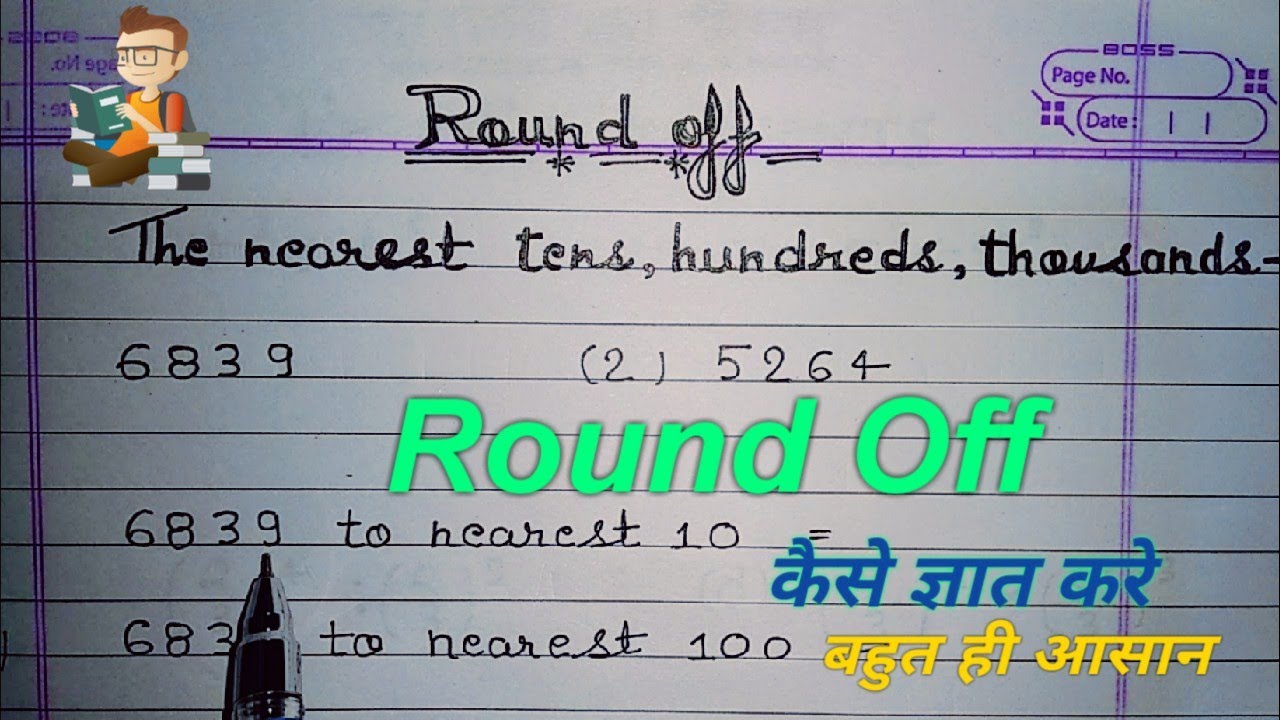 BOSS
Page No.
Date:
Round off
The nearest tens, hundreds, thousands-
6839 (2) 5264
Round Off
6839 to nearest 10 =
कैसे ज्ञात करे
683 to nearest 100
बहुत ही आसान